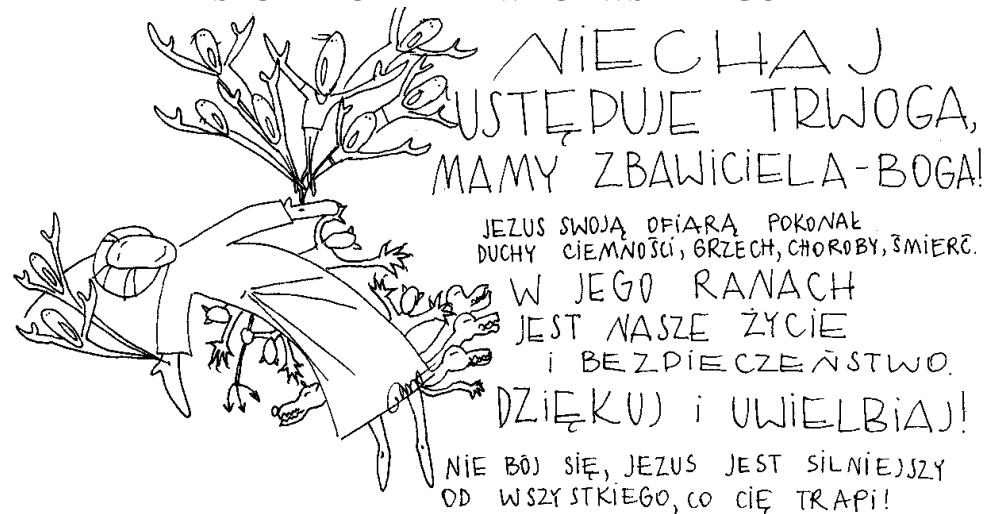 NIECHAJ
USTĘPUJE TRWOGA,
MAMY ZBAWICIELA-BOGA!
JEZUS SWOJĄ OFIARĄ POKONAŁ
DUCHY CIEMNOŚCI, GRZECH, CHOROBY, ŚMIERĆ.
W JEGO RANACH
JEST NASZE ŻYCIE
i BEZPIECZEŃSTWO.
DZIĘKUJ i UWIELBIAJ!
NIE BÓJ SIĘ, JEZUS JEST SILNIEJSZY
OD WSZYSTKIEGO, CO CIĘ TRAPI!